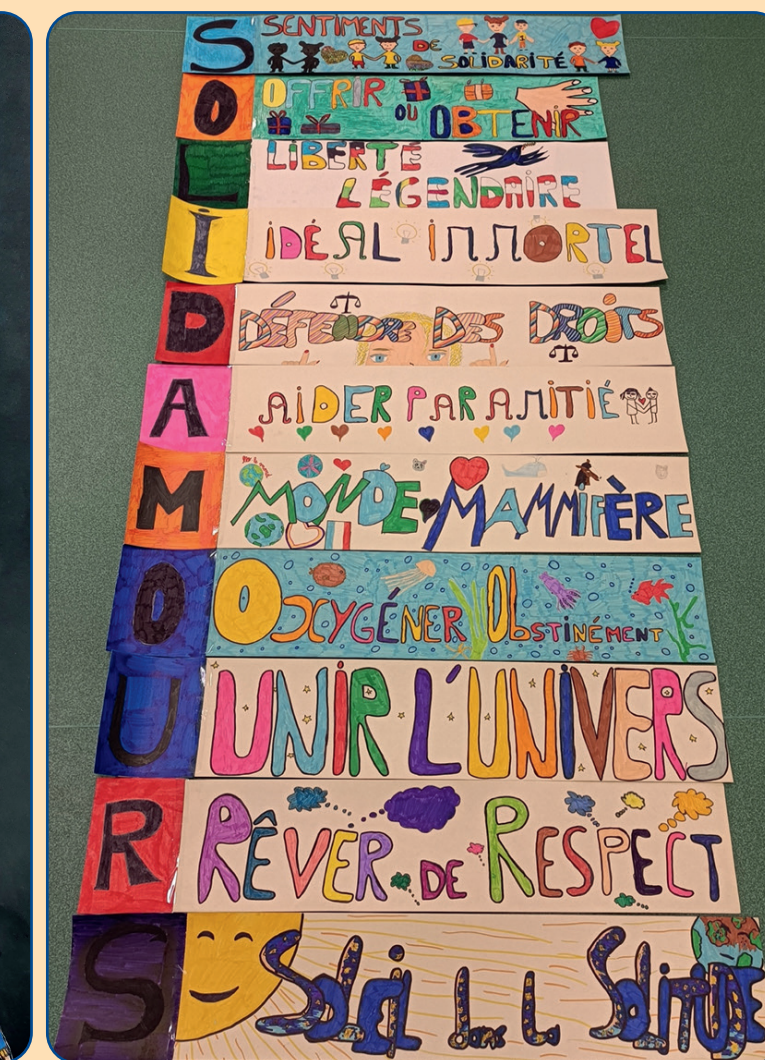 S SENTIMENTS
DE SOLIDARITÉ
O OFFRIR
OU OBTENIR
L LIBERTÉ
LÉGENDAIRE
I IDÉAL IMMORTEL
D DÉFENDRE DES DROITS
A AIDER PAR AMITIÉ
M MONDE MAMMIFÈRE
O OXYGÉNER OBSTINÉMENT
U UNIR L'UNIVERS
R RÊVER DE RESPECT
S Soleil dans la SoliTUDE